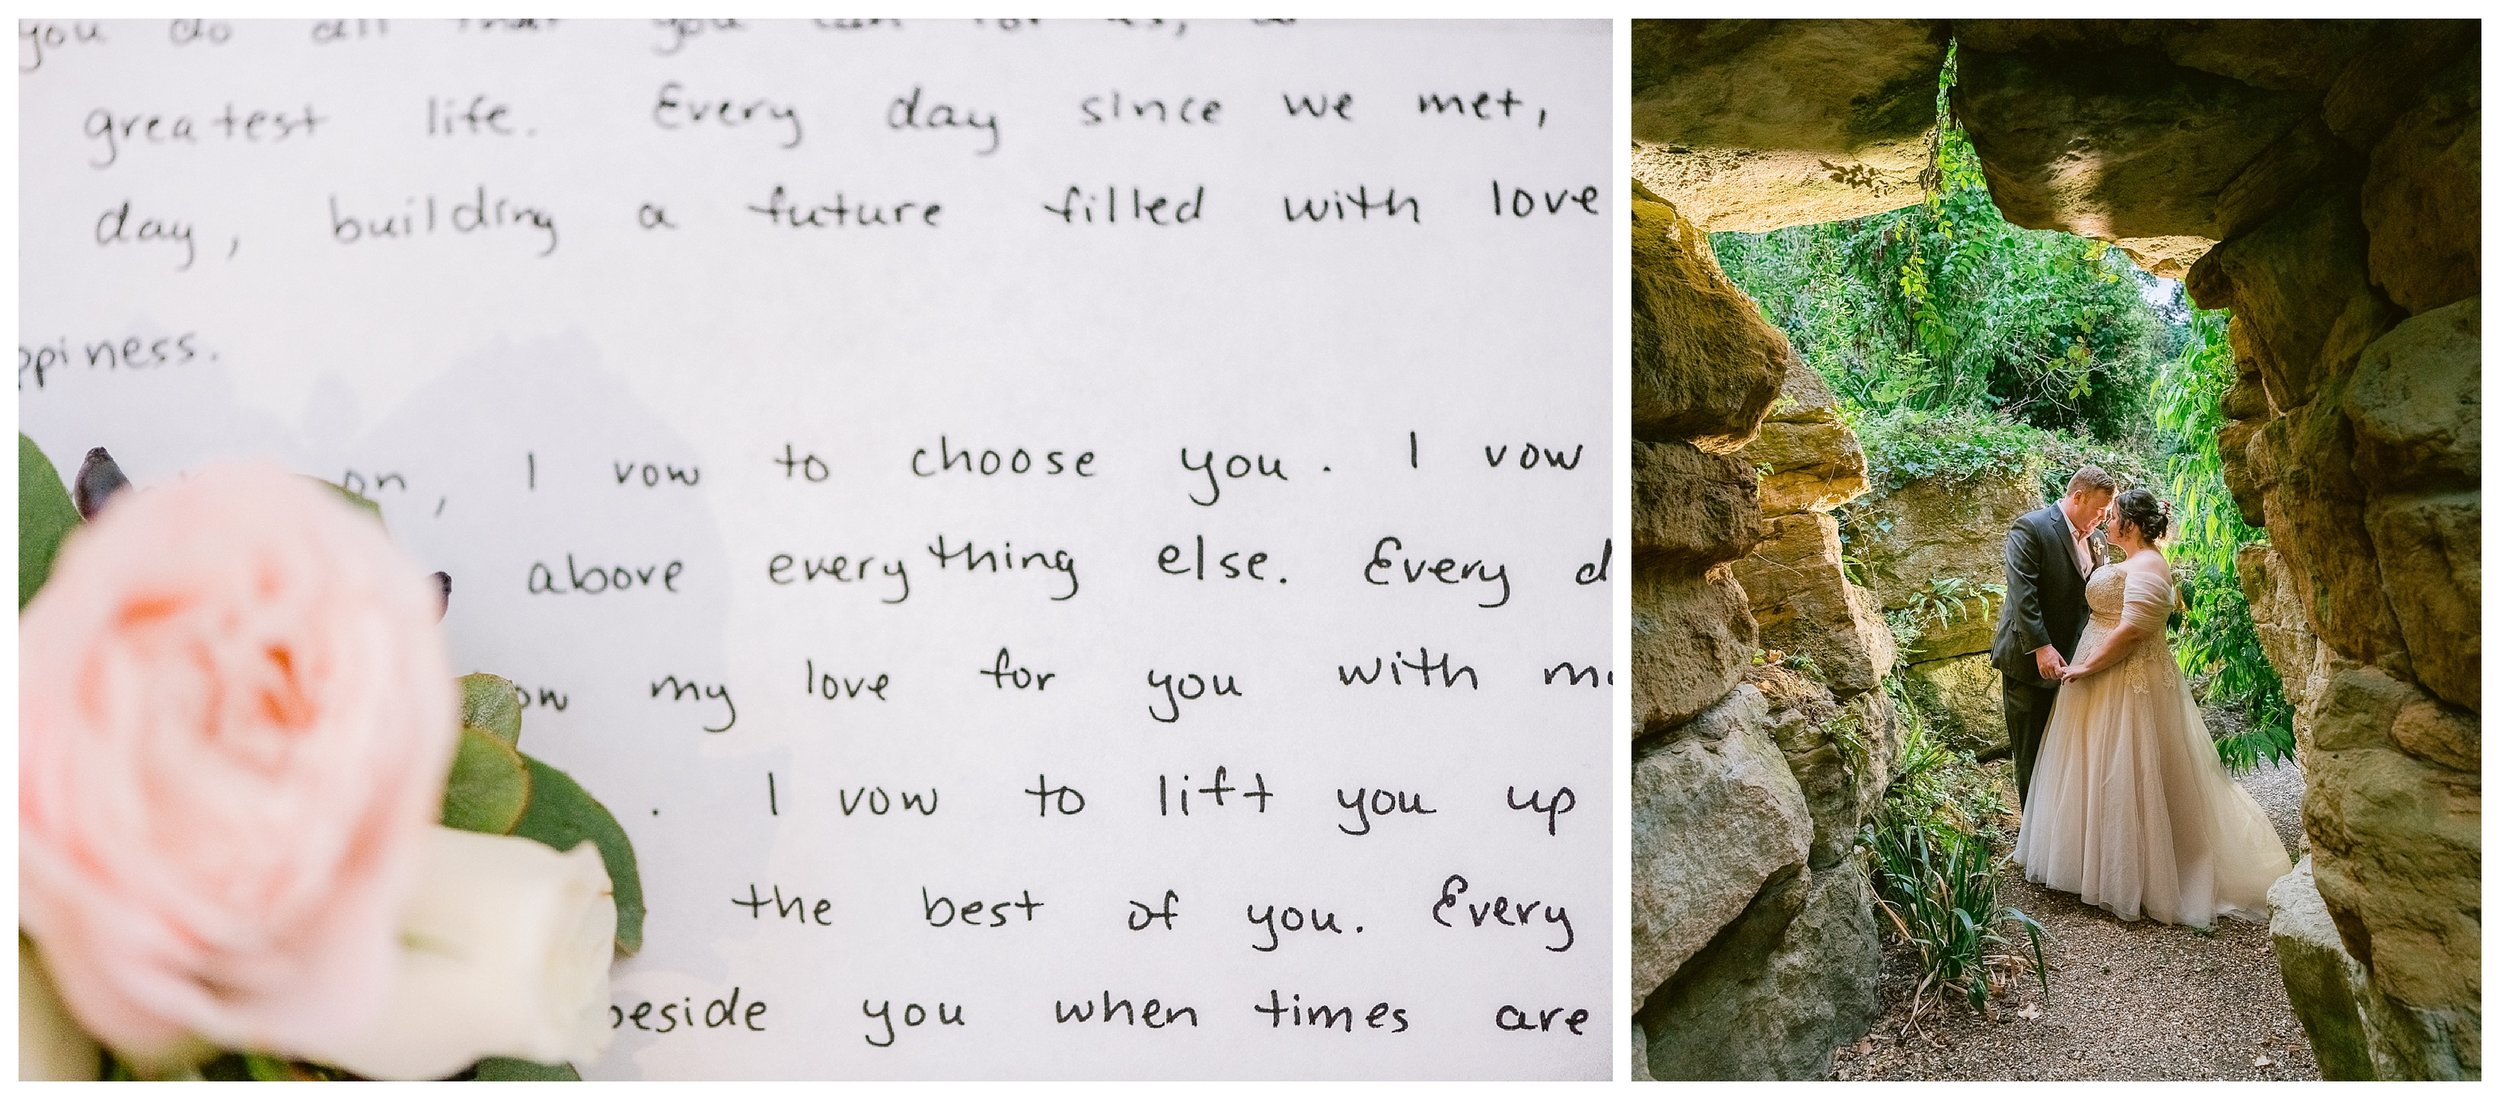 you do all that you can for us,
greatest life. Every day since we met,
day, building a future filled with love
ppiness.
on, I vow to choose you. I vow
above everything else. Every d
ow my love for you with m
. I vow to lift you up
the best of you. Every
beside you when times are